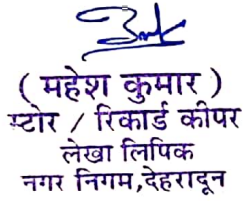 ( महेश कुमार )
स्टोर / रिकार्ड कीपर
लेखा लिपिक
नगर निगम,देहरादून